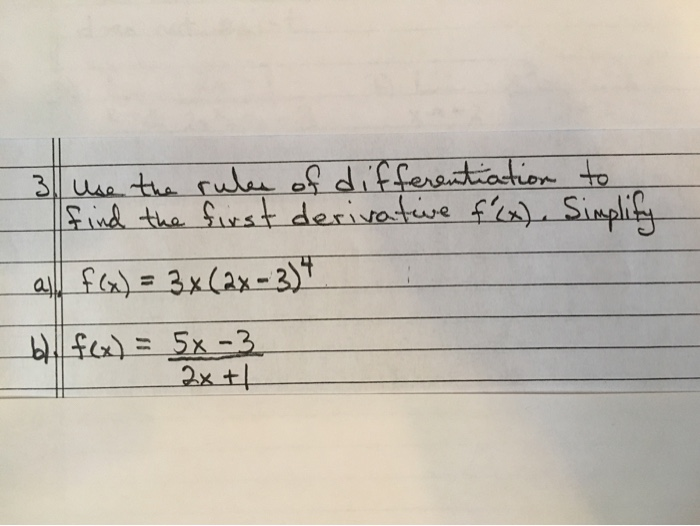 3. Use the rules of differentiation to
find the first derivative f'(x). Simplify
a). f(x) = 3x(2x-3)⁴
b). f(x) = 5x-3
2x+1